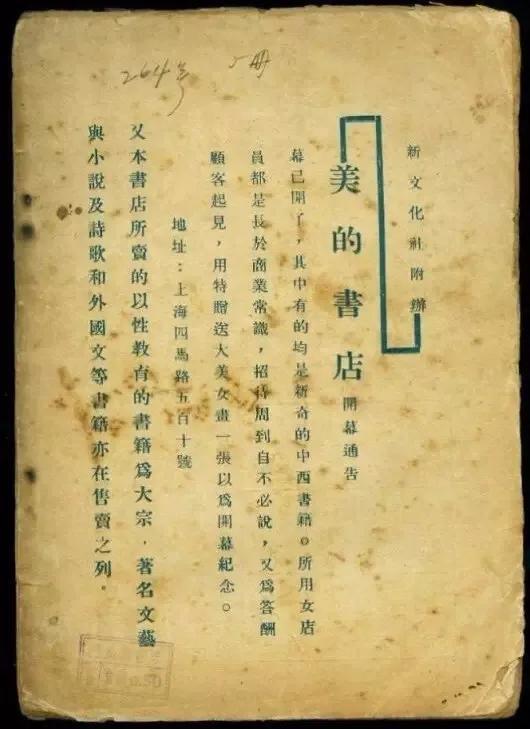 264号 一册
新文化社附辦
美的書店開幕通告
幕已開了，其中有的均是新奇的中西書籍。所用女店
員都是長於商業常識，招待周到自不必說，又爲答酬
顧客起見，用特贈送大美女畫一張以爲開幕紀念。
地址：上海四馬路五百十號
又本書店所賣的以性教育的書籍爲大宗，著名文藝
與小說及詩歌和外國文等書籍亦在售賣之列。